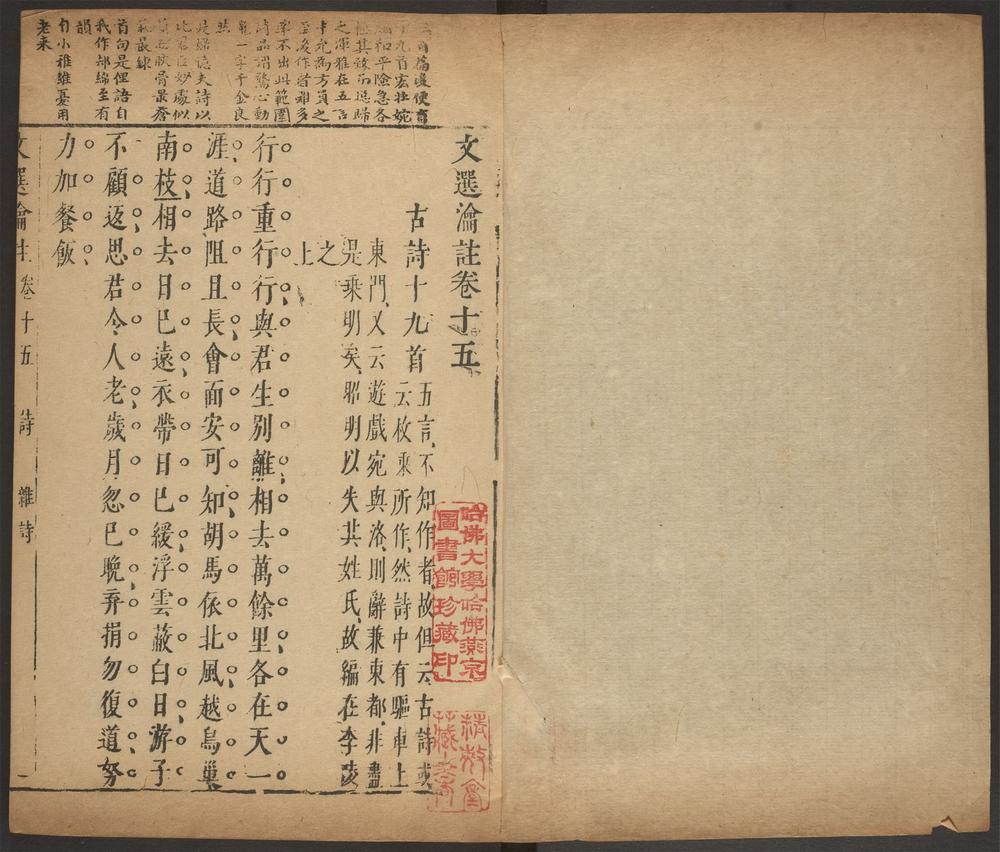 文選瀹註卷十五
古詩十九首
五言、不知作者、故但云古詩、或
云枚乘所作、然詩中有驅車上
東門、又云遊戲宛與洛、則辭兼東都、非盡
是乘明矣、昭明以失其姓氏、故編在李陵
之
上
行行重行行、與君生別離、相去萬餘里各在天一
涯、道路阻且長、會面安可知胡馬依北風越鳥巢
南枝相去日已遠衣帶日已緩浮雲蔽白日、游子
不顧返、思君令人老、歲月忽已晚、弃捐勿復道努
力加餐飯、
文選瀹註 卷十五 詩 雜詩 一
九首宏壯婉
和平險急各
極其致而總歸
之渾雅在五言
中允為方員之
至後作者雖多
率不出此範圍
詩品謂驚心動
魄一字千金良
然
是婦憶夫詩以
比君臣妙處似
質而腴骨最蒼
氣最鍊
首句是俚語自
我作却綿至有
韻
自小雅維憂用
老來
哈佛大學哈佛燕京
圖書館珍藏印